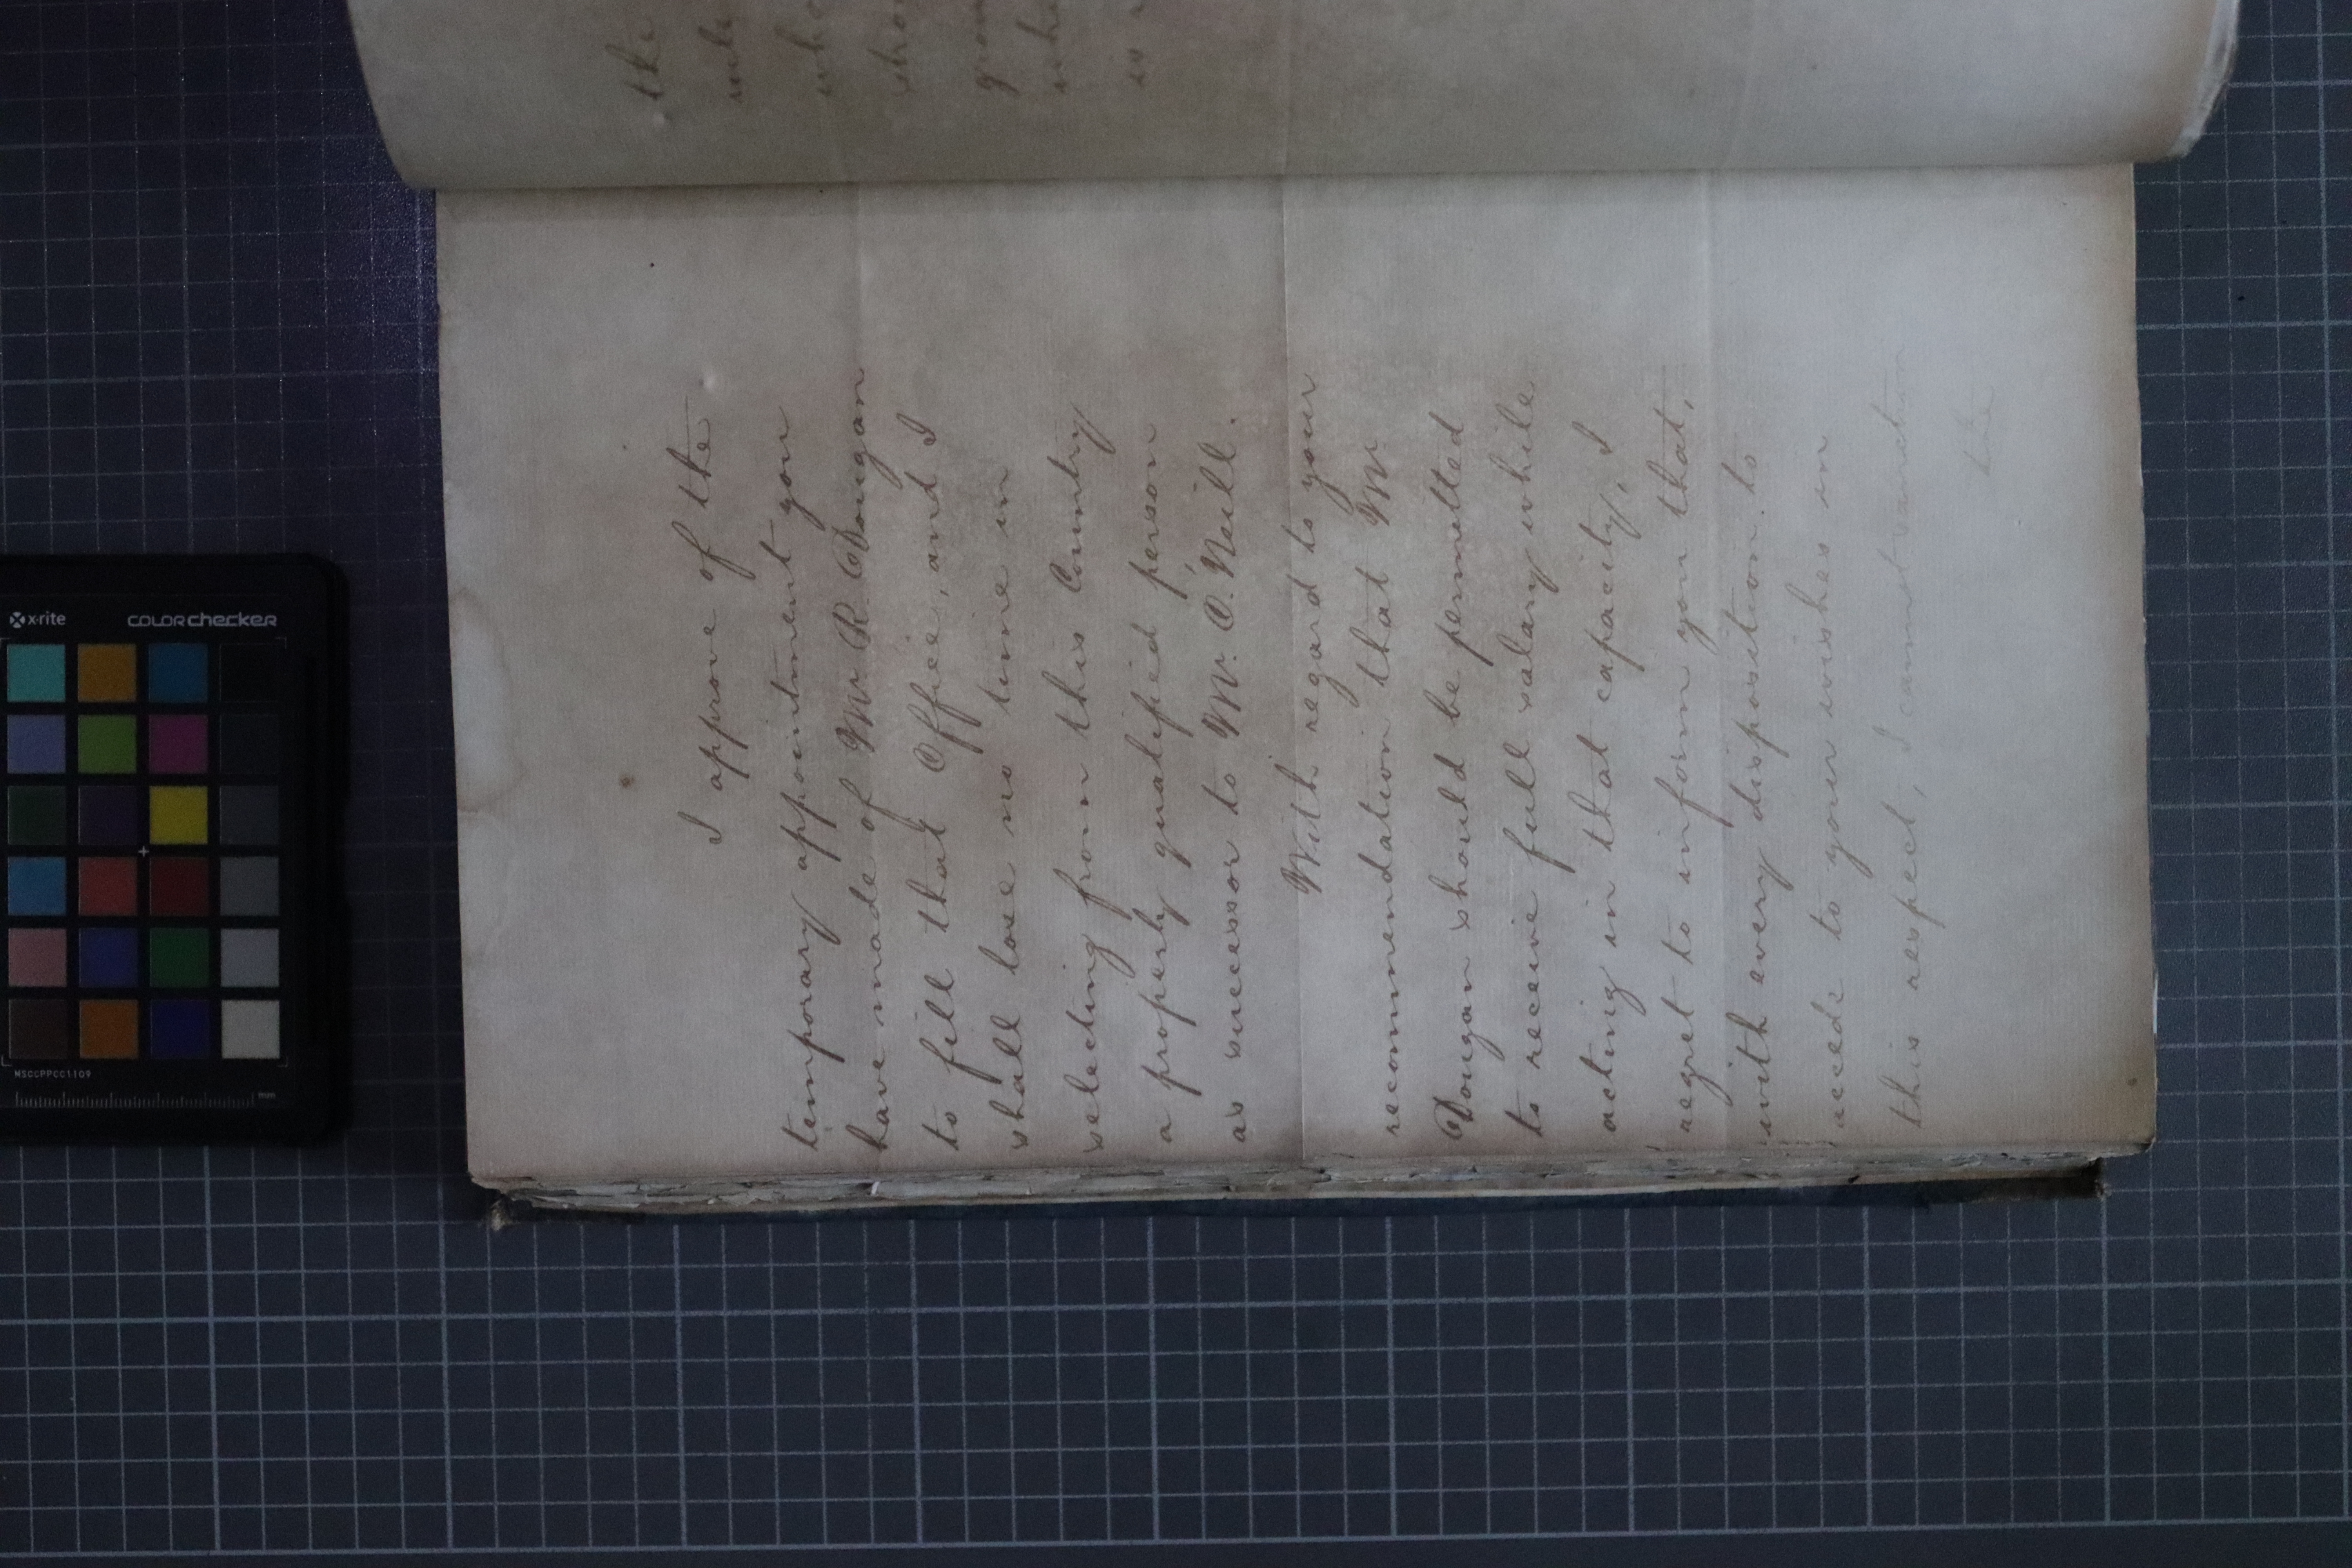 I approve of the
temporary appointment you
have made of Mr. R. Dougan
to fill that Office, and I
shall lose no time in
selecting from this Country
a properly qualified person
as successor to Mr. O'Neill.
With regard to your
recommendation that Mr.
Dougan should be permitted
to receive full salary while
acting in that capacity, I
regret to inform you that,
with every disposition to
accede to your wishes in
this respect, I cannot sanction
the
the
who
shou
is
x-rite
COLORchecker
MSCCPPCC1109
mm